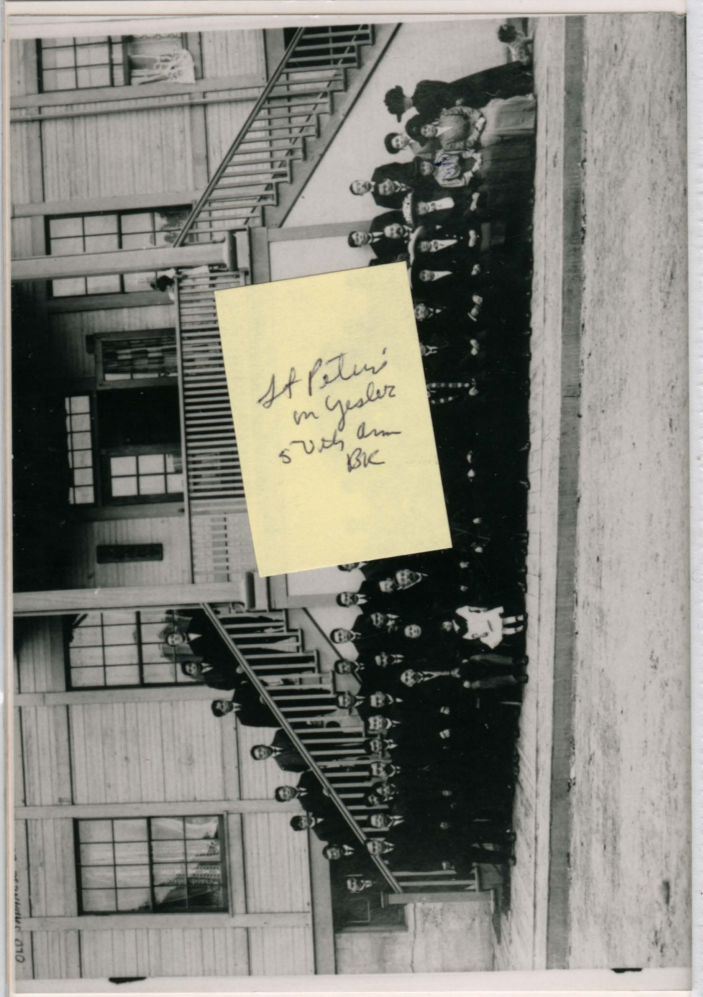 St Peter's
on Yesler
50th Ann
BK
OLD